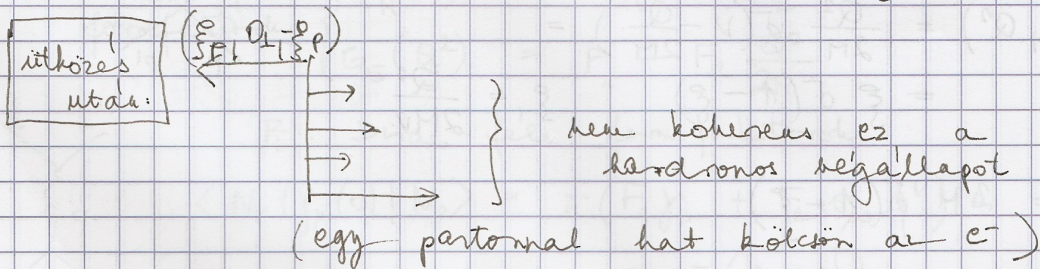 ütközés
után:
(ξE, 0⊥, -ξp)
nem koherens ez a
hardronos végállapot
(egy partonnal hat kölcsön az e⁻)